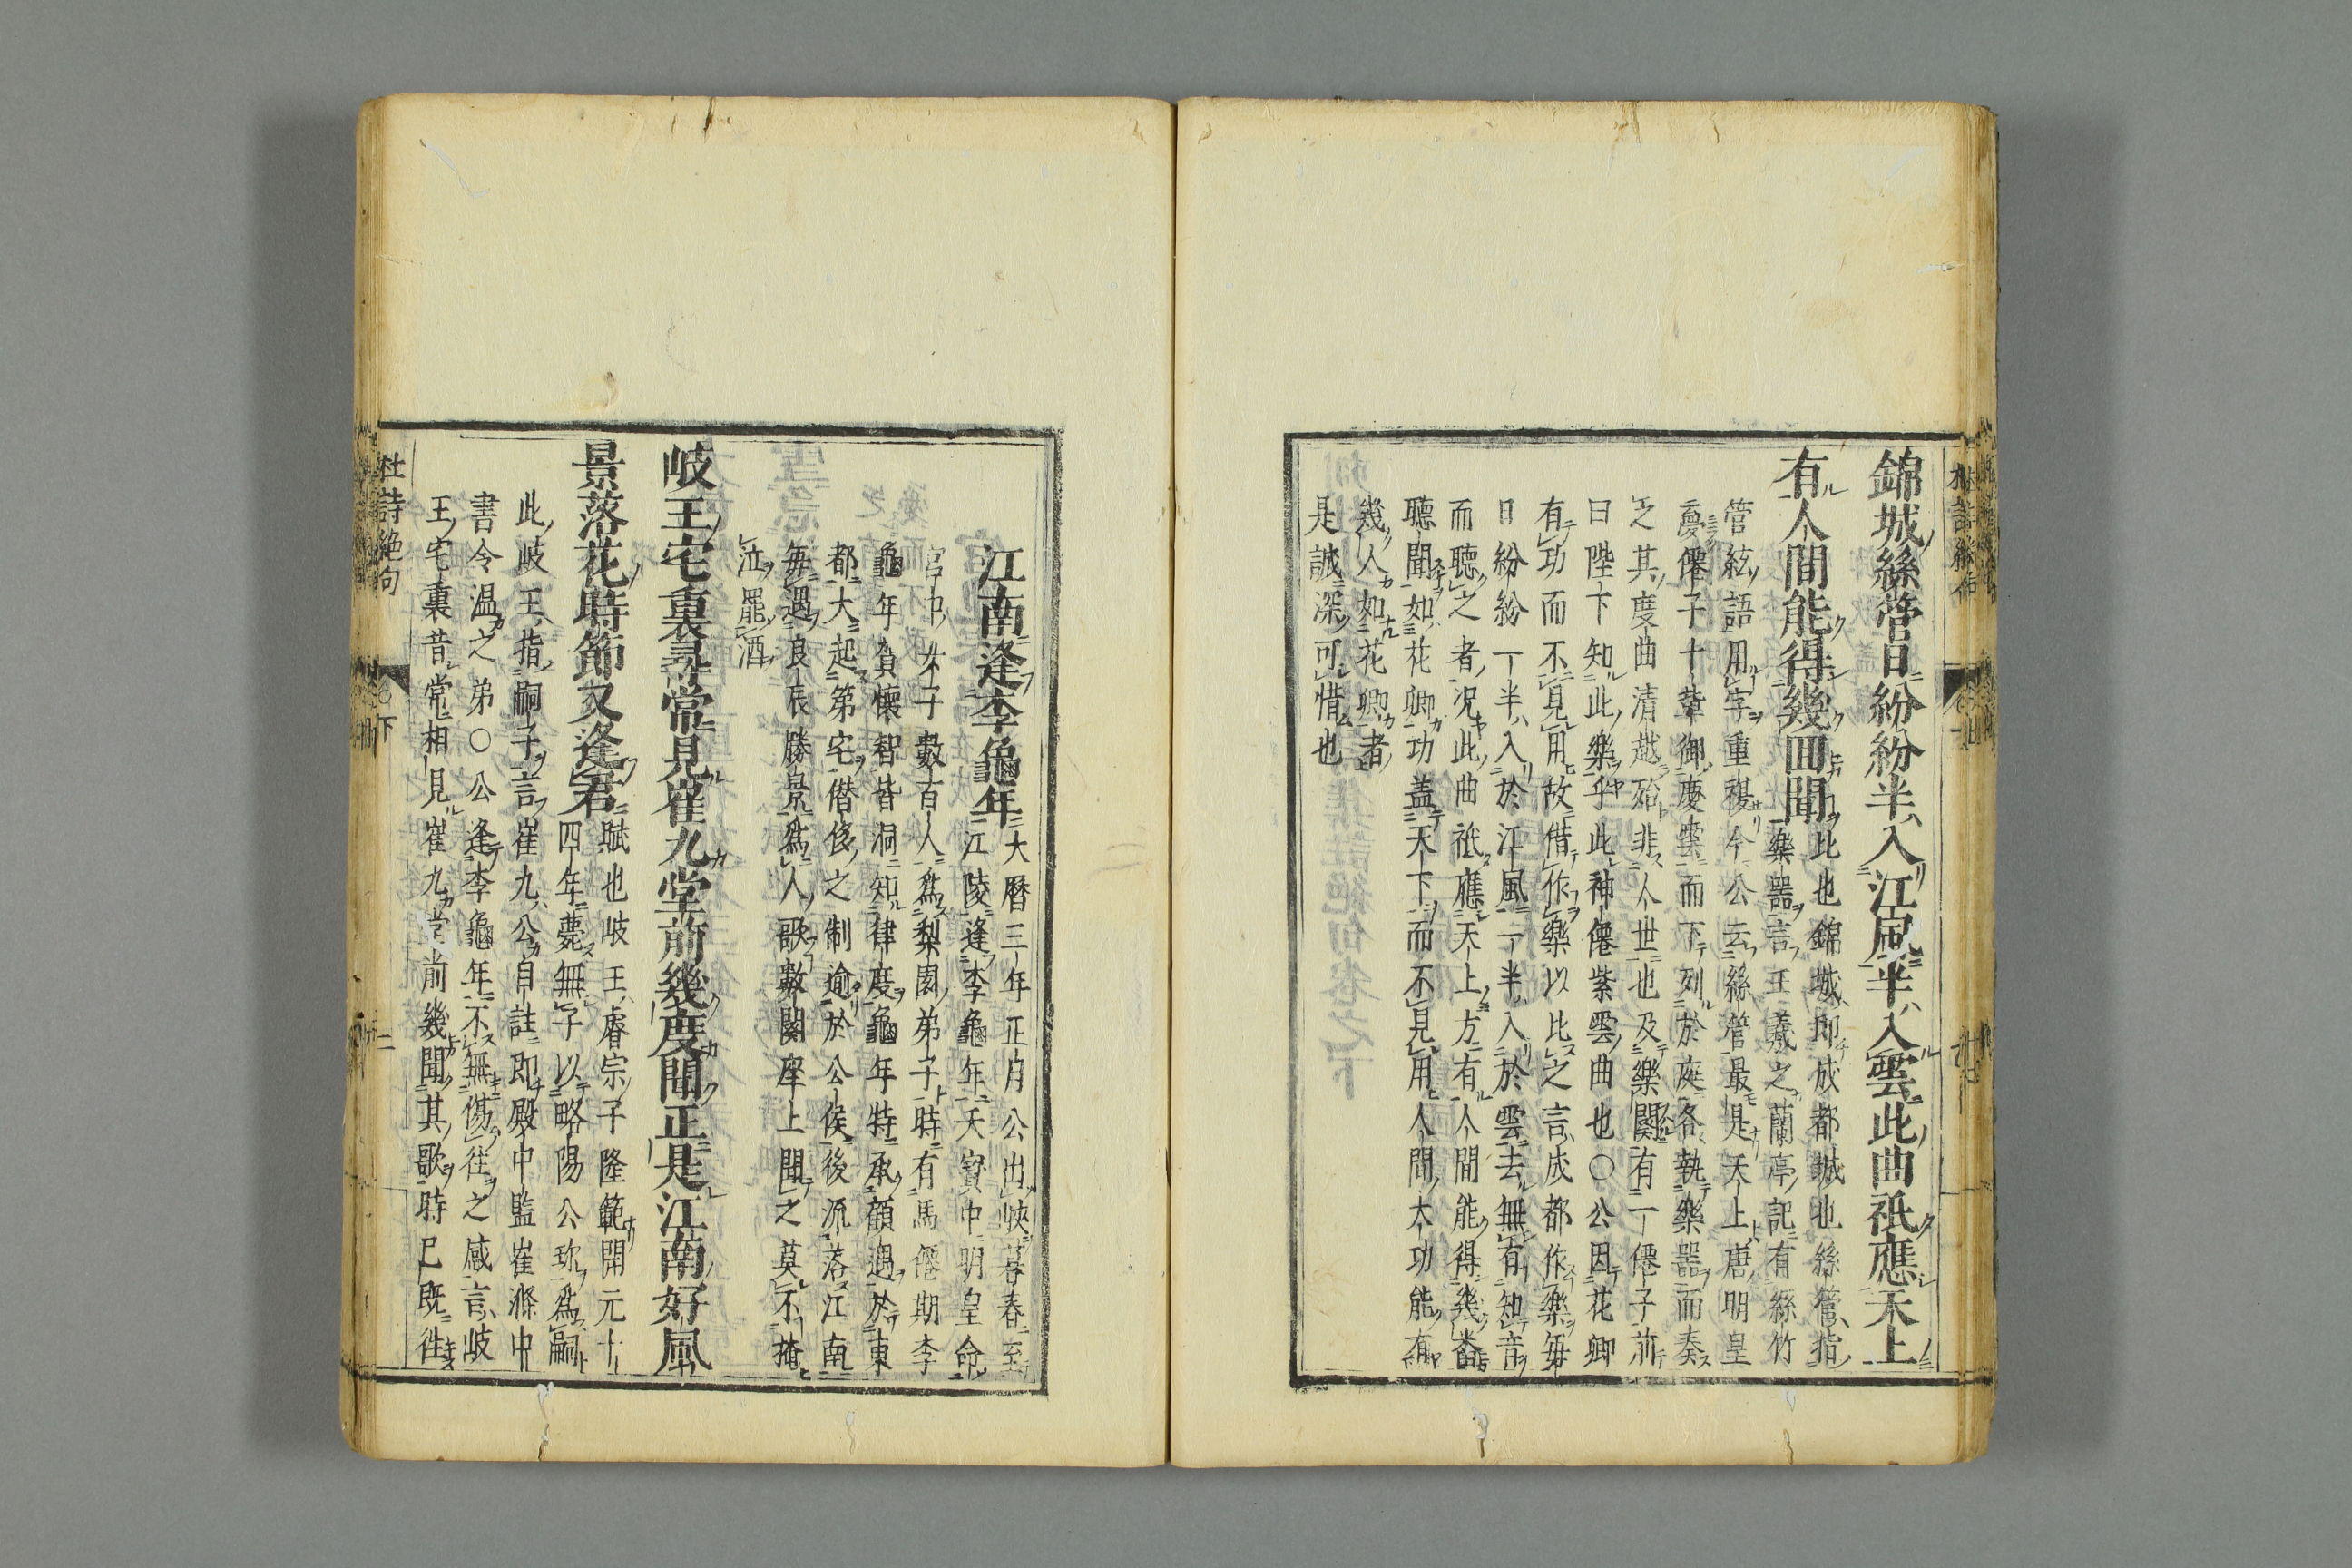 錦城絲管日紛紛半入江風半入雲此曲祇應天上
有人間能得幾回聞
此也錦城即成都城也絲管指
樂器言王羲之蘭亭記有絲竹
管絃語用字重複今公云絲管最是天上唐明皇
夢僊子十輩御慶雲而下列於庭各執樂器而奏
之其度曲清越殆非人世也及樂闋有一僊子前
曰陛下知此樂乎此神僊紫雲曲也〇公因花卿
有功而不見用故借作樂以比之言成都作樂毎
日紛紛一半入於江風一半入於雲去無有知音
而聽之者况此曲祇應天上方有人間能得幾畨
聽聞如花卿功盖天下而不見用人間大功能有
幾人如花卿者
是誠深可惜也
江南逢李龜年
大曆三年正月公出峽暮春至
江陵逢李龜年天寳中明皇命
宮中女子數百人爲梨園弟子時有馬僊期李
龜年賀懷智皆洞知律度龜年特承顧遇於東
都大起第宅僭侈之制逾於公侯後流落江南
毎遇良辰勝景爲人歌數闋座上聞之莫不掩
泣罷酒
岐王宅裏尋常見崔九堂前幾度聞正是江南好風
景落花時節又逢君
賦也岐王睿宗子隆範開元十
四年薨無子以略陽公珍爲嗣
此岐王指嗣子言崔九公自註即殿中監崔滌中
書令温之弟〇公逢李龜年不無傷往之感言岐
王宅裏昔常相見崔九堂前幾聞其歌時已既徃
杜詩絶句
下
二